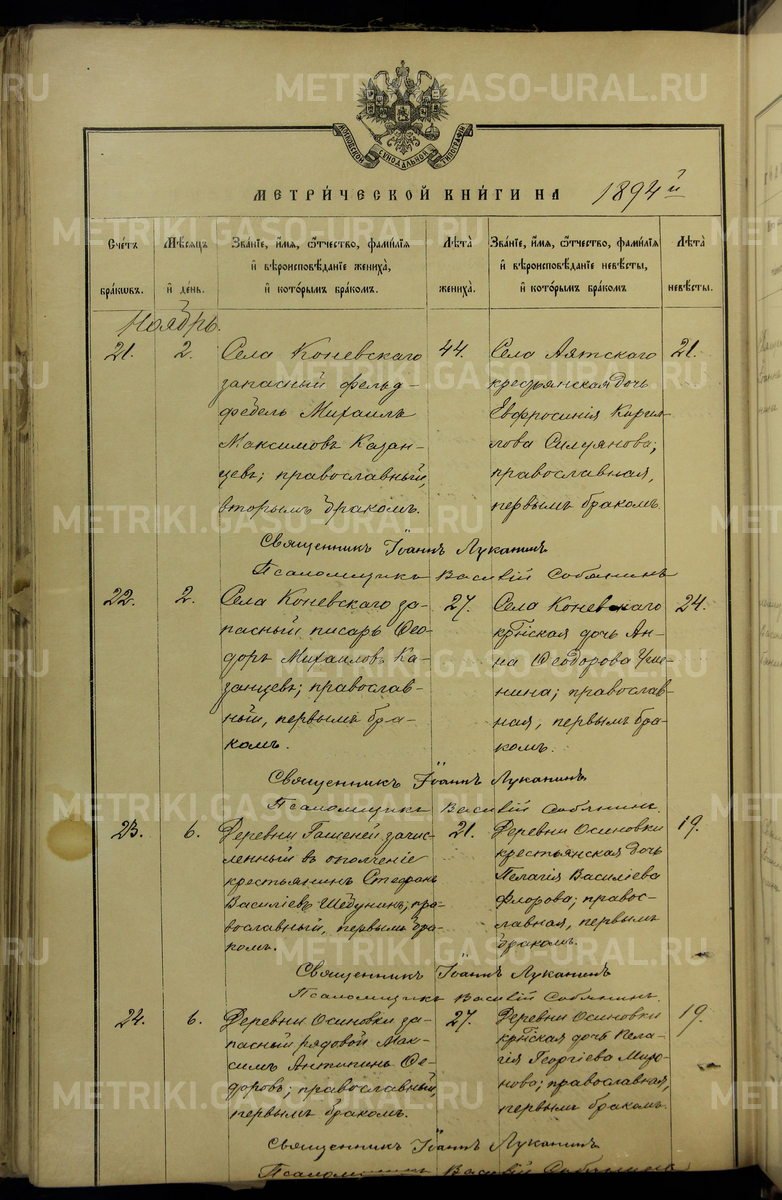 МОСКОВСКОЙ СѴНОДАЛЬНОЙ ТИПОГРАФІИ
МЕТРИ́ЧЕСКОЙ КНИ́ГИ НА 1894й
Сче́тъ бра́кѡвъ.
Мѣ́сѧцъ и҆ день.
Зва́нїе, и҆́мѧ, ѻ҆́тчество, фами́лїѧ и҆ вѣроисповѣ́данїе жениха̀, и҆ кото́рымъ бра́комъ.
Лѣ́та жениха̀.
Зва́нїе, и҆́мѧ, ѻ҆́тчество, фами́лїѧ и҆ вѣроисповѣ́данїе невѣ́сты, и҆ кото́рымъ бра́комъ.
Лѣ́та невѣ́сты.
Ноябрь.
21.
2.
Села Коневскаго
запасный фельд-
фебель Михаилъ
Максимовъ Казан-
цевъ; православный,
вторымъ бракомъ.
44.
Села Аятскаго
крестьянская дочь
Евфросинія Кирил-
лова Силуянова;
православная,
первымъ бракомъ.
21.
Священникъ Іоаннъ Луканинъ
Псаломщикъ Василій Собянинъ
22.
2.
Села Коневскаго за-
пасный писарь Ѳео-
доръ Михаиловъ Ка-
занцевъ; православ-
ный, первымъ бра-
комъ.
27.
Села Коневскаго
кртнская дочь Ан-
на Ѳеодорова Уше-
нина; православ-
ная, первымъ бра-
комъ.
24.
Священникъ Іоаннъ Луканинъ
Псаломщикъ Василій Собянинъ.
23.
6.
Деревни Гашеней зачис-
ленный въ ополченіе
крестьянинъ Стефанъ
Василіевъ Шебунинъ; пра-
вославный, первымъ бра-
комъ.
21.
Деревни Осиновки
крестьянская дочь
Пелагія Василіева
Флорова; правос-
лавная, первымъ
бракомъ.
19.
Священникъ Іоаннъ Луканинъ
Псаломщикъ Василій Собянинъ.
24.
6.
Деревни Осиновки за-
пасный рядовой Мак-
симъ Антипинъ Ѳе-
доровъ; православный,
первымъ бракомъ.
27.
Деревни Осиновки
кртнская дочь Пела-
гія Георгіева Миро-
ново; православная,
первымъ бракомъ.
19.
Священникъ Іоаннъ Луканинъ
Псаломщикъ Василій Собянинъ
METRIKI.GASO-URAL.RU